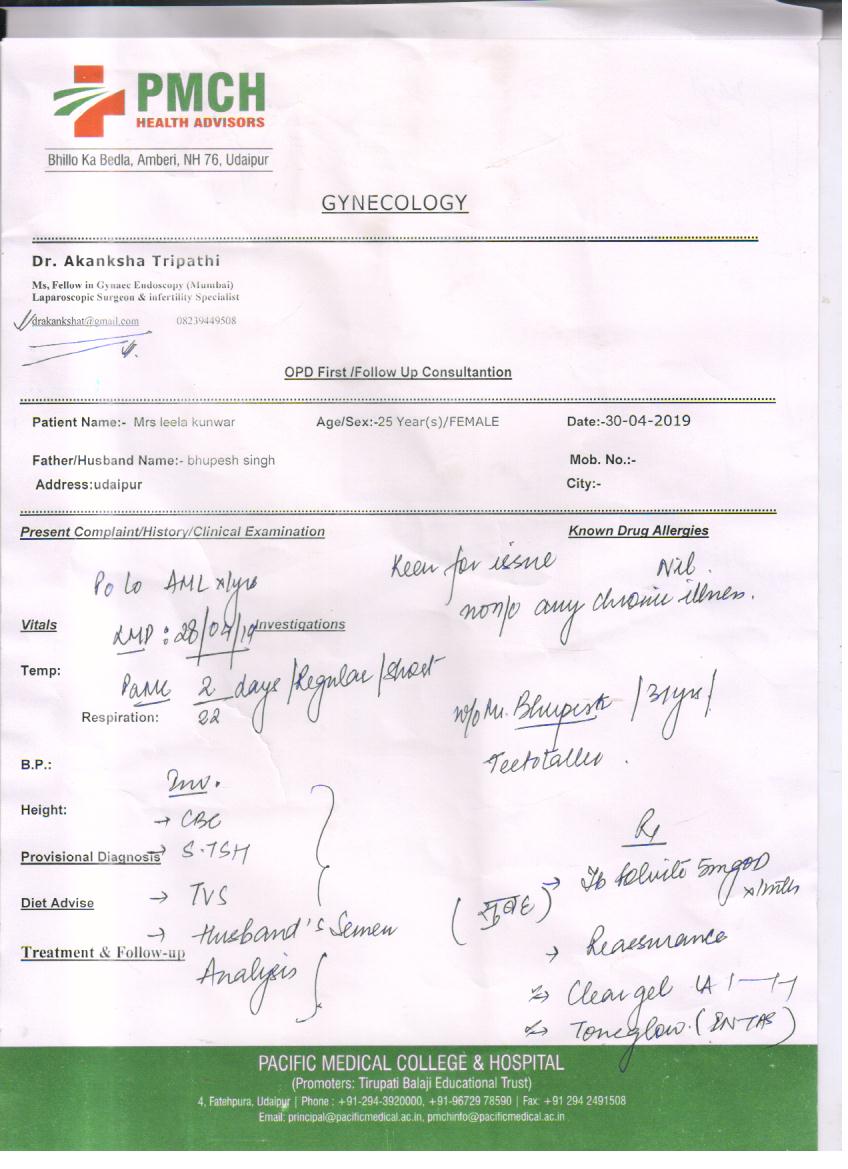 PMCH
HEALTH ADVISORS
Bhillo Ka Bedla, Amberi, NH 76, Udaipur
GYNECOLOGY
Dr. Akanksha Tripathi
Ms, Fellow in Gynaec Endoscopy (Mumbai)
Laparoscopic Surgeon & infertility Specialist
drakankshat@gmail.com 08239449508
OPD First /Follow Up Consultantion
Patient Name:- Mrs leela kunwar Age/Sex:-25 Year(s)/FEMALE Date:-30-04-2019
Father/Husband Name:- bhupesh singh Mob. No.:-
Address:udaipur City:-
Present Complaint/History/Clinical Examination Known Drug Allergies
Keen for issue Nil.
P0 L0 AML
any chronic illness.
Vitals Investigations
LMP : 28/04/19
Temp:
2 days/Regular/Short
Respiration: 22
w/o Mr. Bhupesh /31yrs/
Teetotaller.
B.P.:
Inv.
Height:
→ CBC
Rx
Provisional Diagnosis
→ S.TSH
→ 5mg OD
Diet Advise
→ TVS
(सुबह)
→ Husband's Semen
Analysis
→ Reassurance
Treatment & Follow-up
Clear gel LA
Toneglow. (INTAS)
PACIFIC MEDICAL COLLEGE & HOSPITAL
(Promoters: Tirupati Balaji Educational Trust)
4, Fatehpura, Udaipur | Phone : +91-294-3920000, +91-96729 78590 | Fax: +91 294 2491508
Email: principal@pacificmedical.ac.in, pmchinfo@pacificmedical.ac.in